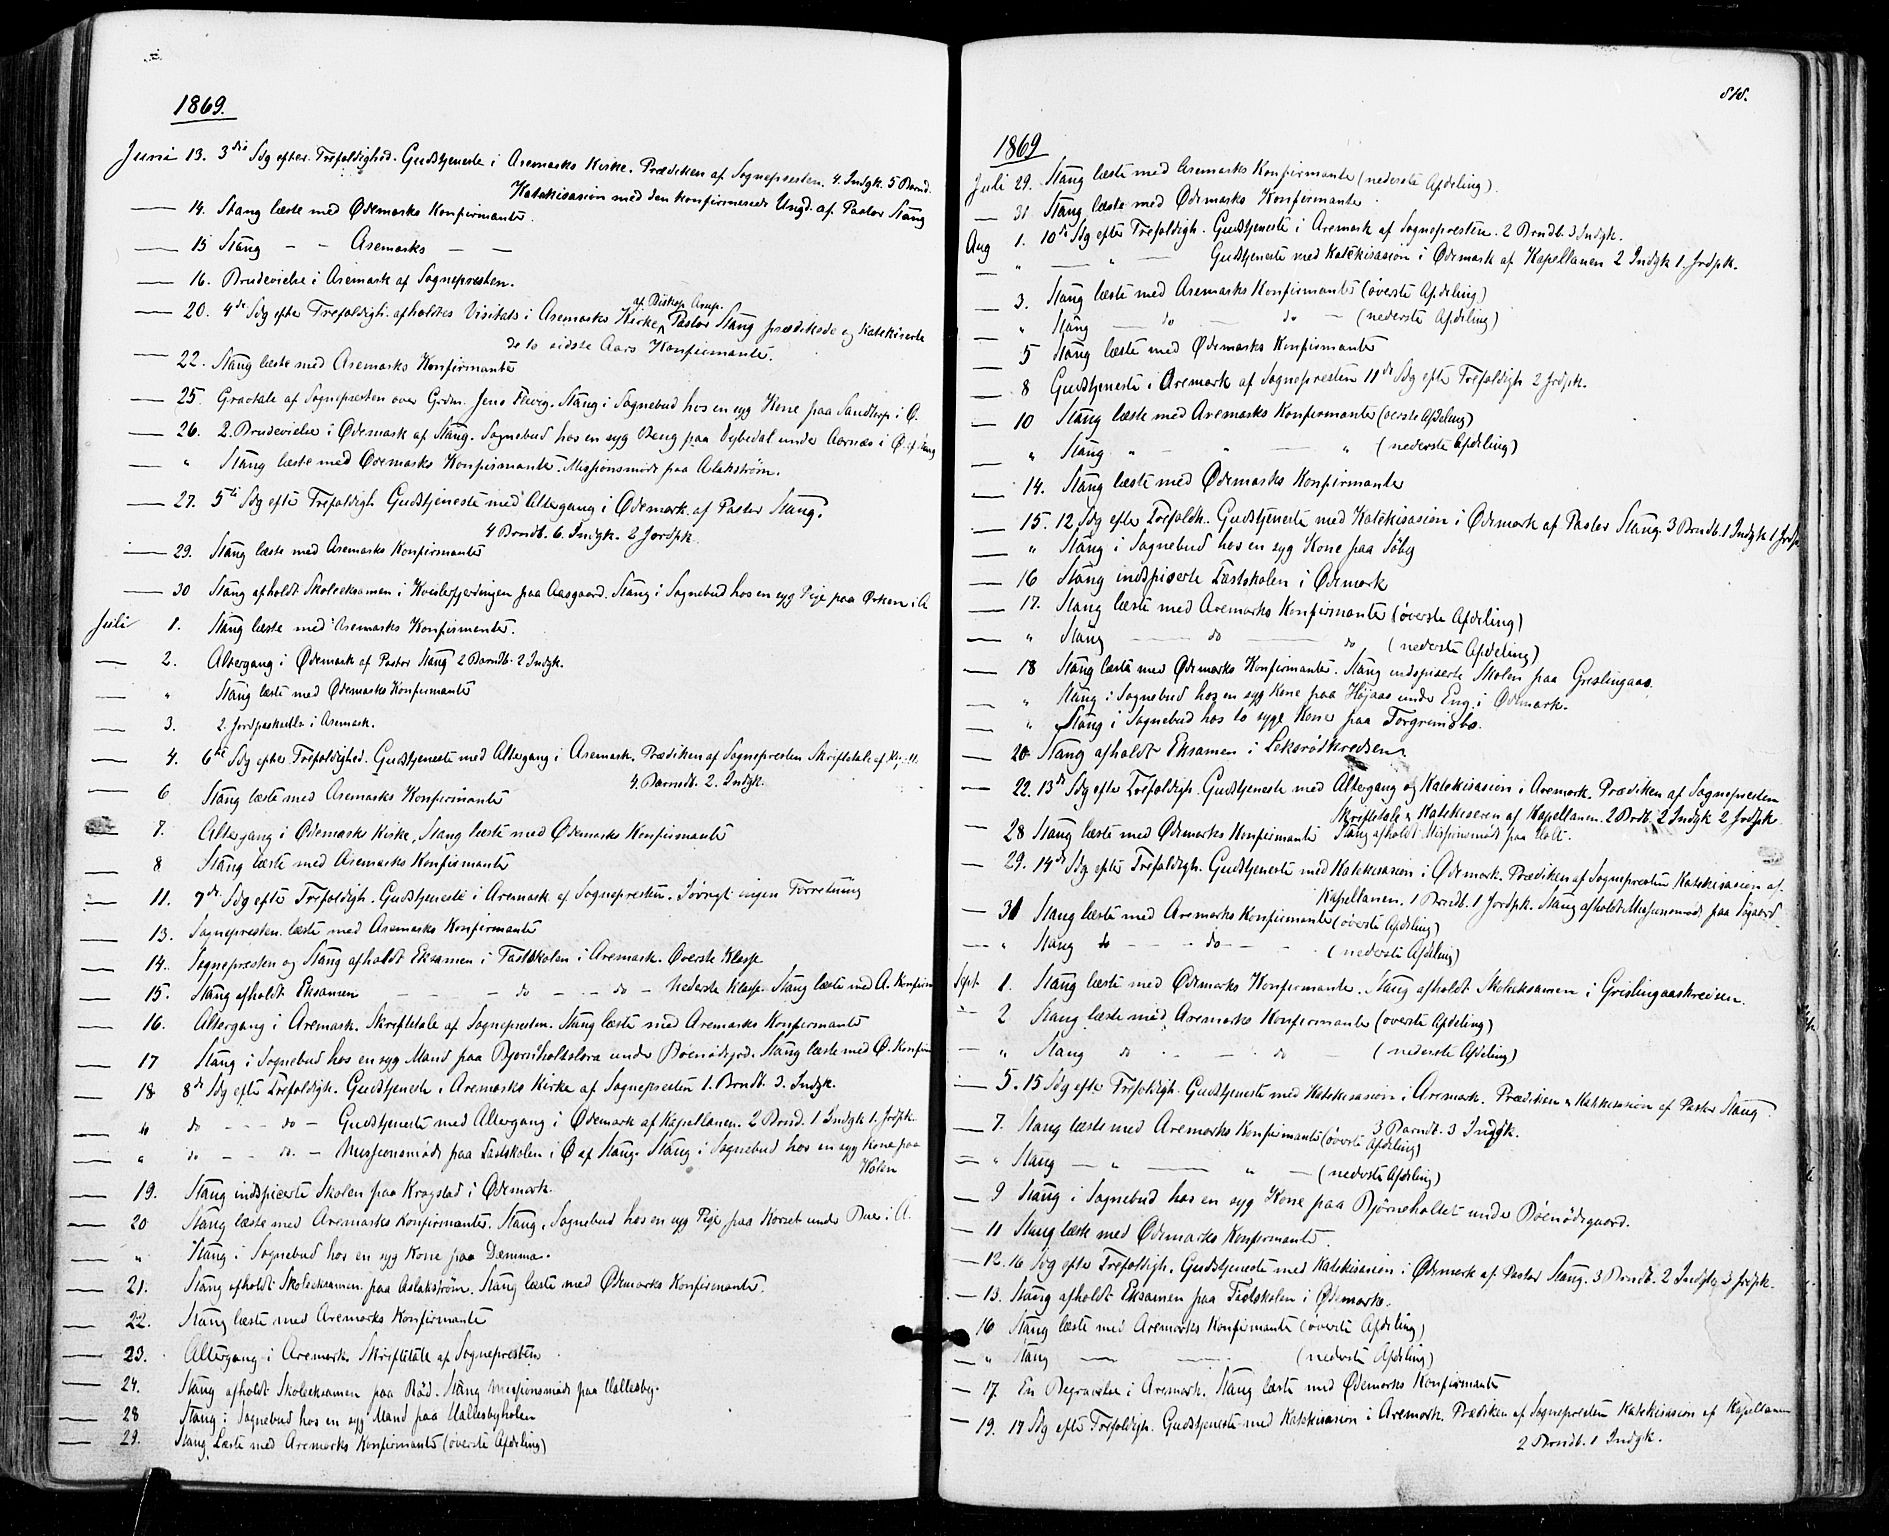 1869.
Juni 13. 3die Sdg efter Trefoldighed. Gudstjeneste i Aremarks Kirke. Prædiken af Sognepresten. 4. Indgk. 5 Barnd.
Katekisasion med den konfirmerede Ungd. af Pastor Stang
— 14. Stang læste med Ødemarks Konfirmanter.
— 15 Stang – – Aremarks – –
— 16. Brudevielse i Aremark af Sognepresten.
af Biskop Arup.
— 20. 4de Sdg efter Trefoldigh. afholdtes Visitats i Aremarks Kirke. Pastor Stang prædikede og katekiserte
de to sidste Aars Konfirmanter.
— 22. Stang læste med Aremarks Konfirmanter
— 25. Gravtale af Sognepresten over Grdm. Jens Stang i Sognebud hos en syg Kone paa i Ø.
— 26. 2. Brudevielse i Ødemark af Stang. Sognebud hos en syg paa under Aarnæs i Ø. af Stang
— " Stang læste med Ødemarks Konfirmanter. Missionsmøde paa Aslakstrøm.
— 27. 5te Sdg efter Trefoldigh. Gudstjeneste med Altergang i Ødemark af Pastor Stang.
4 Brndb. 6. Indgk. 2 Jordpk.
— 29. Stang læste med Aremarks Konfirmanter
— 30 Stang afholdt Skoleeksamen i paa Aasgaard. Stang i Sognebud hos en syg Pige paa Ørken i A
Juli 1. Stang læste med Aremarks Konfirmanter.
— 2. Altergang i Ødemark af Pastor Stang 2 Barndb. 2 Indgk.
— " Stang læste med Ødemarks Konfirmanter
— 3. 2. Jordpaakastelse i Aremark.
— 4. 6te Sdg efter Trefoldighed. Gudstjeneste med Altergang i Aremark. Prædiken af Sognepresten Skriftetale af Kap:
4. Barndb. 2. Indgk.
— 6 Stang læste med Aremarks Konfirmanter
— 7. Altergang i Ødemarks Kirke, Stang læste med Ødemarks Konfirmanter
8 Stang læste med Aremarks Konfirmanter
— 11. 7de Sdg efter Trefoldigh. Gudstjeneste i Aremark af Sognepresten. Iøvrigt ingen Forretning
— 13. Sognepresten læste med Aremarks Konfirmanter
— 14. Sognepresten og Stang afholdt Eksamen i Fastskolen i Aremark. Øverste Klasse
— 15. Stang afholdt Eksamen – – – do – – do – Nederste Klasse. Stang læste med A. Konfirm
— 16. Altergang i Aremark. Skriftetale af Sognepresten. Stang læste med Aremarks Konfirmanter
— 17 Stang i Sognebud hos en syg Mand paa under Bøenødsgrd. Stang læste med Ø. Konfirm
— 18 8de Sdg efter Trefoldigh. Gudstjeneste i Aremarks Kirke af Sognepresten 1. Brndb. 3. Indgk.
— " do – – do – Gudstjeneste med Altergang i Ødemark af Kapellanen. 2 Brnd. 1 Indgk 1. Jrdpk.
— " do – – do. – Missionsmøde paa Fastskolen i Ø af Stang. Stang i Sognebud hos en syg Kone paa
Holen
— 19. Stang indspicerte Skolen paa Kragstad i Ødemark.
— 20 Stang læste med Aremarks Konfirmanter. Stang i Sognebud hos en syg Pige paa Korset under Buer i A.
— " Stang i Sognebud hos en syg Kone paa Dæmma.
— 21. Stang afholdt Skoleeksamen paa Aslakstrøm. Stang læste med Ødemarks Konfirmanter.
— 22. Stang læste med Aremarks Konfirmanter
— 23. Altergang i Aremark. Skriftetale af Sognepresten
— 24. Stang afholdt Skoleeksamen paa Rød. Stang Missionsmøde paa Ullesby.
— 28 Stang i Sognebud hos en syg Mand paa Ullesbyholen
— 29. Stang Læste med Aremarks Konfirmanter (øverste Afdeling)
1869
Juli 29. Stang læste med Aremarks Konfirmanter (nederste Afdeling).
— 31 Stang læste med Ødemarks Konfirmanter.
Aug 1. 10de Sdg efter Trefoldigh. Gudstjeneste i Aremark af Sognepresten. 2 Brndb. 3 Indgk.
— " — " — Gudstjeneste med Katekisasion i Ødemark af Kapellanen 2 Indgk 1. Jrdpk.
— 3. Stang læste med Aremarks Konfirmanter (øverste Afdeling.)
— " Stang — do — do — (nederste Afdeling)
— 5 Stang læste med Ødemarks Konfirmanter
— 8 Gudstjeneste i Aremark af Sognepresten 11de Sdg efter Trefoldigh 2 Jrdpk.
— 10 Stang læste med Aremarks Konfirmanter (øverste Afdeling)
— " Stang " — " — " (nederste Afdeling)
— 14. Stang læste med Ødemarks Konfirmanter
— 15. 12 Sdg efter Trefoldh. Gudstjeneste med Katekisasion i Ødemark af Pastor Stang. 3 Brndb. 1 Indgk 1 Jrdp
— " Stang i Sognebud hos en syg Kone paa Søby
— 16 Stang indspiserte Fastskolen i Ødemark
— 17. Stang læste med Aremarks Konfirmanter (øverste Afdeling)
— " Stang — do — do (nederste Afdeling)
— 18 Stang læste med Ødemarks Konfirmanter. Stang indspiserte Skolen paa Greslingaas.
— " Stang i Sognebud hos en syg Kone paa Højaas under Eng i Ødemark.
— " Stang i Sognebud hos to syge Koner paa Torgrimsbø.
— 20 Stang afholdt Eksamen i Leksrødkredsen
— 22. 13de Sdg efter Trefoldigh. Gudstjeneste med Altergang og Katekisasion i Aremark. Prædiken af Sognepresten
Skriftetale & Katekiseren af Kapellanen. 2 Brdb. 2 Indgk 2 Jrdpk
— 28 Stang læste med Ødemarks Konfirmanter Stang afholdt Missionsmøde paa Holt.
— 29. 14de Sdg efter Trefoldigh. Gudstjeneste med Katekisasion i Ødemark. Prædiken af Sognepresten Katekisasion af
Kapellanen. 1 Brndb. 1 Jordpk. Stang afholdt Missionsmøde paa
— 31 Stang læste med Aremarks Konfirmanter (øverste Afdeling)
— " Stang do – – do – – (nederste Afdeling)
Sept. 1. Stang læste med Ødemarks Konfirmanter. Stang afholdt Skoleeksamen i Grislingaaskredsen.
— 2 Stang læste med Aremarks Konfirmanter (øverste Afdeling)
— " Stang do – – do – (nederste Afdeling)
— 5. 15 Sdg efter Trefoldigh. Gudstjeneste med Katekisasion i Aremark. Prædiken & Katekisasion af Pastor Stang.
3 Barndb. 3 Indgk.
— 7. Stang læste med Aremarks Konfirmanter (øverste Afdeling)
— " Stang — " — " — (nederste Afdeling)
— 9 Stang i Sognebud hos en syg Kone paa Bjørneholtet under Bøenødsgaard.
— 11 Stang læste med Ødemarks Konfirmanter.
— 12. 16 Sdg efter Trefoldigh. Gudstjeneste med Katekisasion i Ødemark af Pastor Stang. 3 Brndb. 2 Indgk 3 Jrdpk.
— 13. Stang afholdt Eksamen paa Fastskolen i Ødemark.
— 16 Stang læste med Aremarks Konfirmanter (øverste Afdeling)
— " Stang — — (nederste Afdeling)
— 17. En Begravelse i Aremark. Stang læste med Ødemarks Konfirmanter
— 19. 17 Sdg efter Trefoldigh. Gudstjeneste med Katekisasion i Aremark. Prædiken af Sognepresten Katekisasion af Kapellanen
2 Brndb. 1 Indgk.